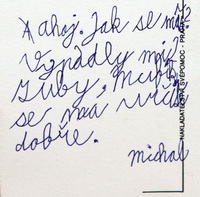 A ahoj. Jak se máš?
Vypadly mi
zuby. Mur
se má
dobře.
Michal
NAKLADATELSTVÍ SVĚPOMOC - PRAHA